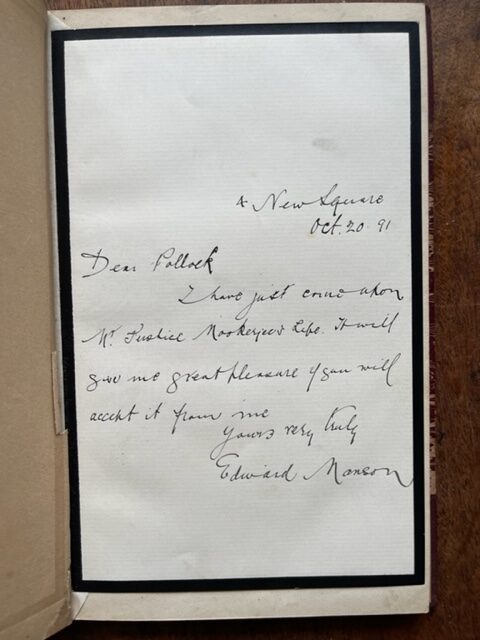 4 New Square
Oct. 20 91
Dear Pollock
I have just come upon
Mr Justice Mookerjee's Life. It will
give me great pleasure if you will
accept it from me
Yours very truly
Edward Manson